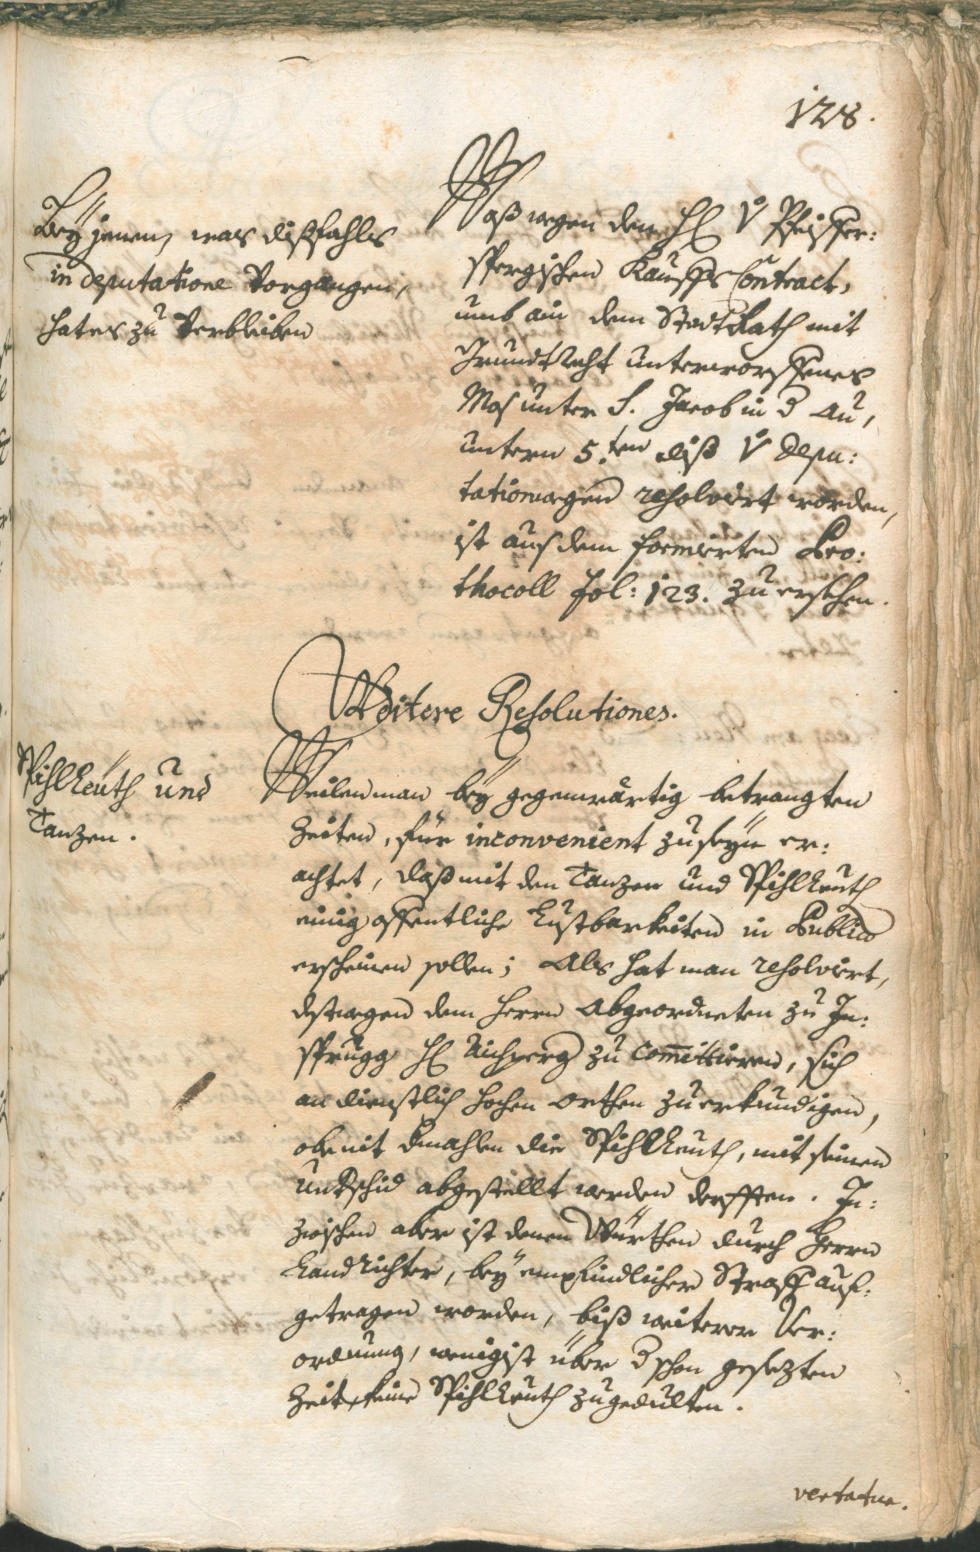 128.
Bey jenen, was dißfahls
in deputatione Vorgangen,
hat es zu Verbleiben
Waß wegen dem H: V Pfeiffer:
spergischen Kauffs Contract,
umb ain dem StadtRath mit
Grundtrecht unterworffenes
Mos unter S. Jacob in d Au,
untern 5.ten diß V depu:
tationwegen resolviert worden,
ist aus dem formierten Pro:
thocoll fol: 123. zu ersehen.
Weitere Resolutiones.
Spihlleüth und
Tanzen.
Weilen man bey gegenwärtig betrangten
Zeiten, für inconvenient zu seyn er:
achtet, daß mit den Tanzen und Spihlleuth
einig offentliche Lustbarkeiten in Publico
erscheinen sollen; Als hat man resolviert,
destwegen dem Herrn Abgeordneten zu In:
sprugg H: Aichperg zu committieren, sich
an dienstlich hochen orthen zu erkundigen,
ob nit dmahlen die Spihlleuth, mit seinen
undschid abgestellt werden derfften. In:
zwischen aber ist denen Würthen durch Herrn
Landrichter, bey empfindlicher Straff auf:
getragen worden, biß weiterer Ver:
ordnung, wenigist über d schon gesezten
Zeit, keine Spihlleuth zu gedulten.
vertatur.